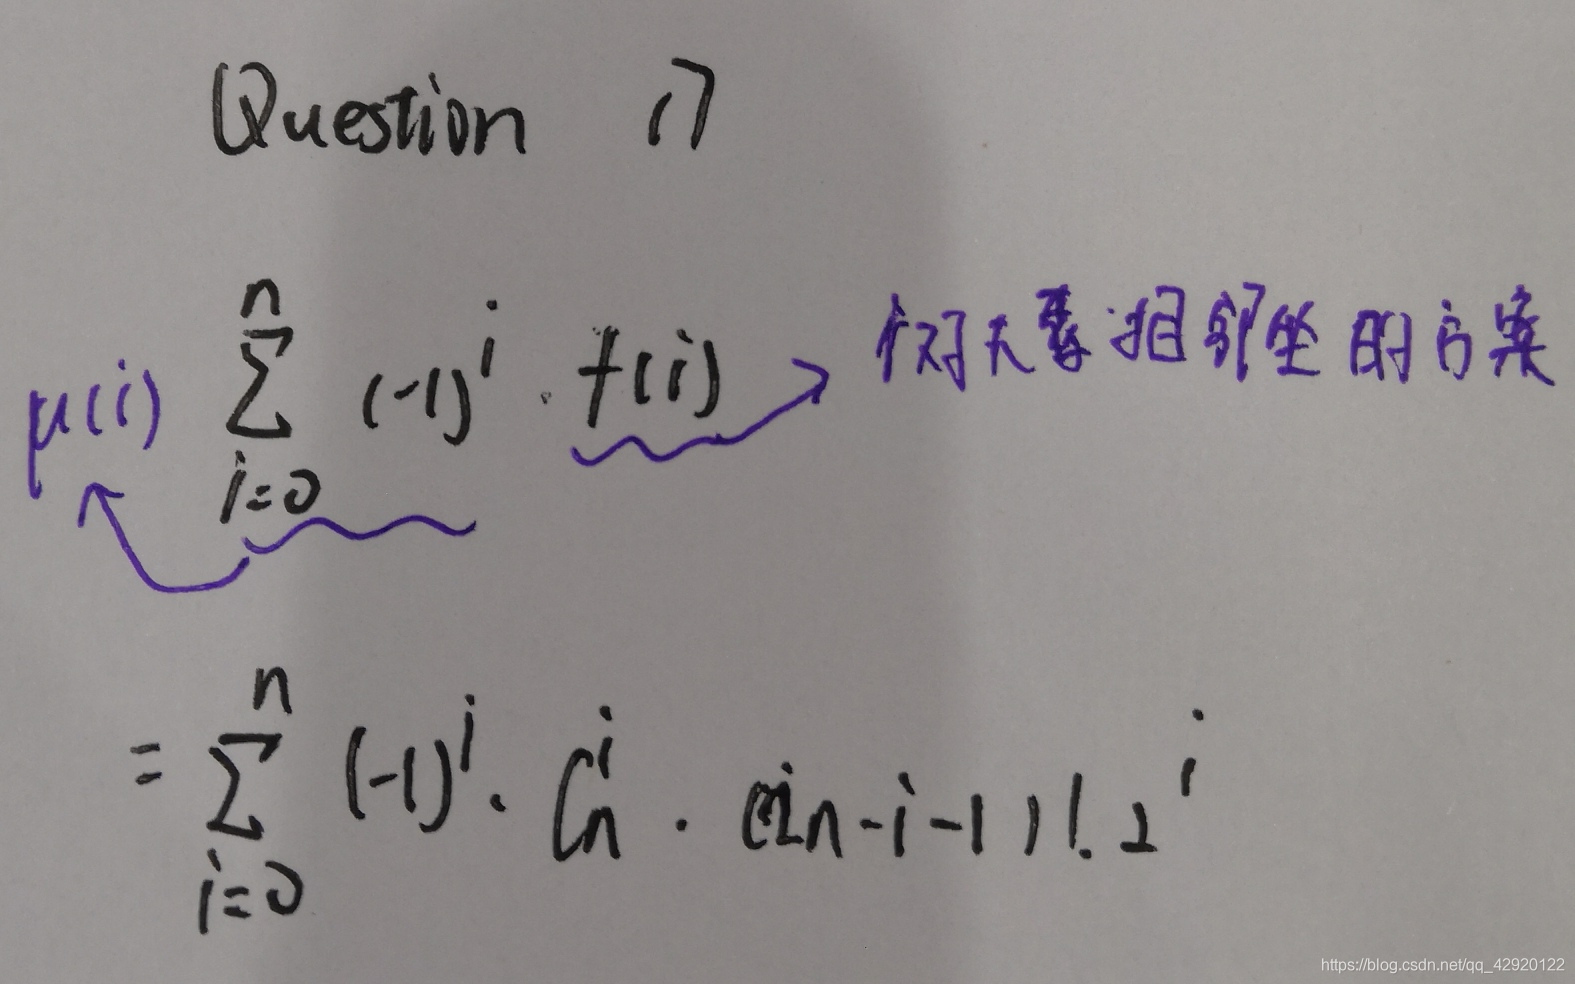 Question 17
μ(i) \sum_{i=0}^{n} (-1)^i · f(i) → i对夫妻相邻坐的方案
= \sum_{i=0}^{n} (-1)^i · C_n^i · (2n-i-1)! · 2^i
https://blog.csdn.net/qq_42920122